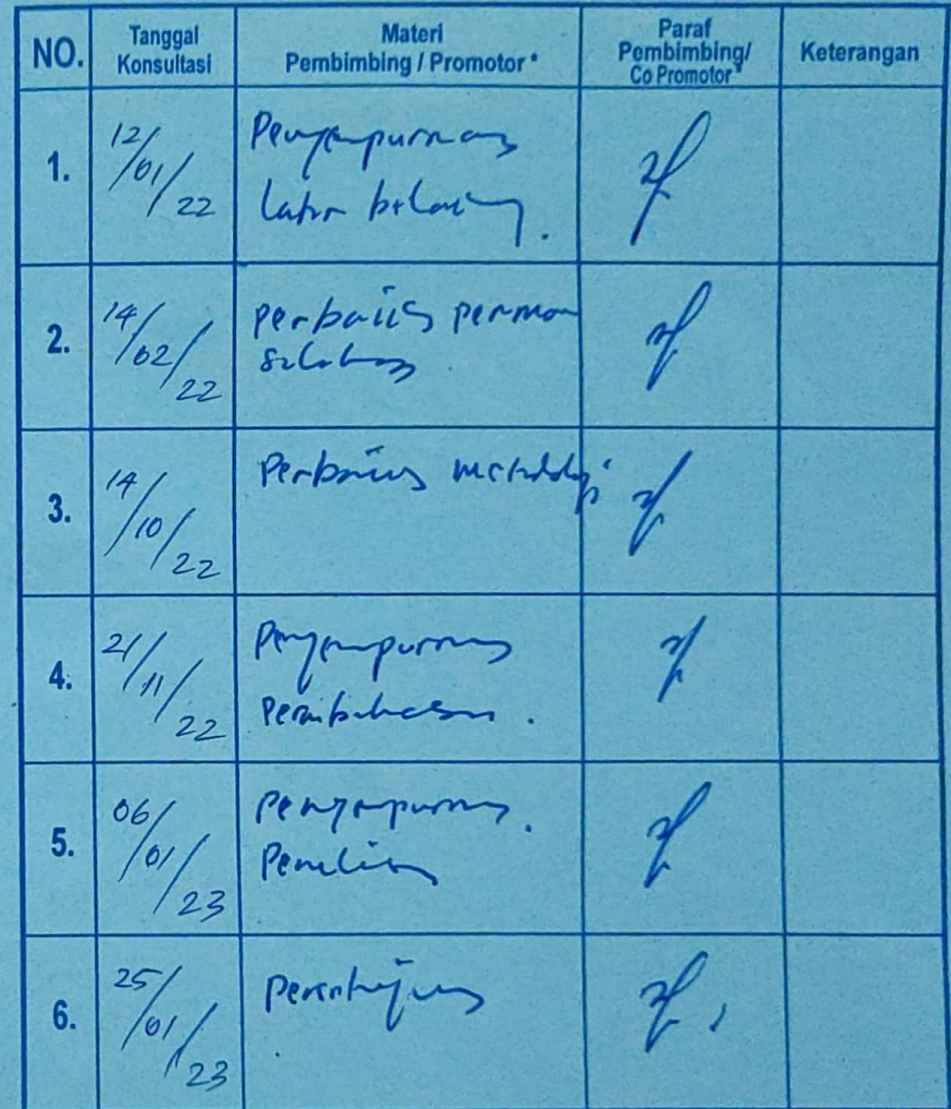 NO.
Tanggal
Konsultasi
Materi
Pembimbing / Promotor *
Paraf
Pembimbing/
Co Promotor *
Keterangan
1.
12/01/22
Penyempurnaan
latar belakang.
2.
14/02/22
Perbaikan permasalahan
3.
14/10/22
Perbaikan metodologi
4.
21/11/22
Penyempurnaan
Pembahasan.
5.
06/01/23
Penyempurnaan.
Penelitian
6.
25/01/23
Persetujuan